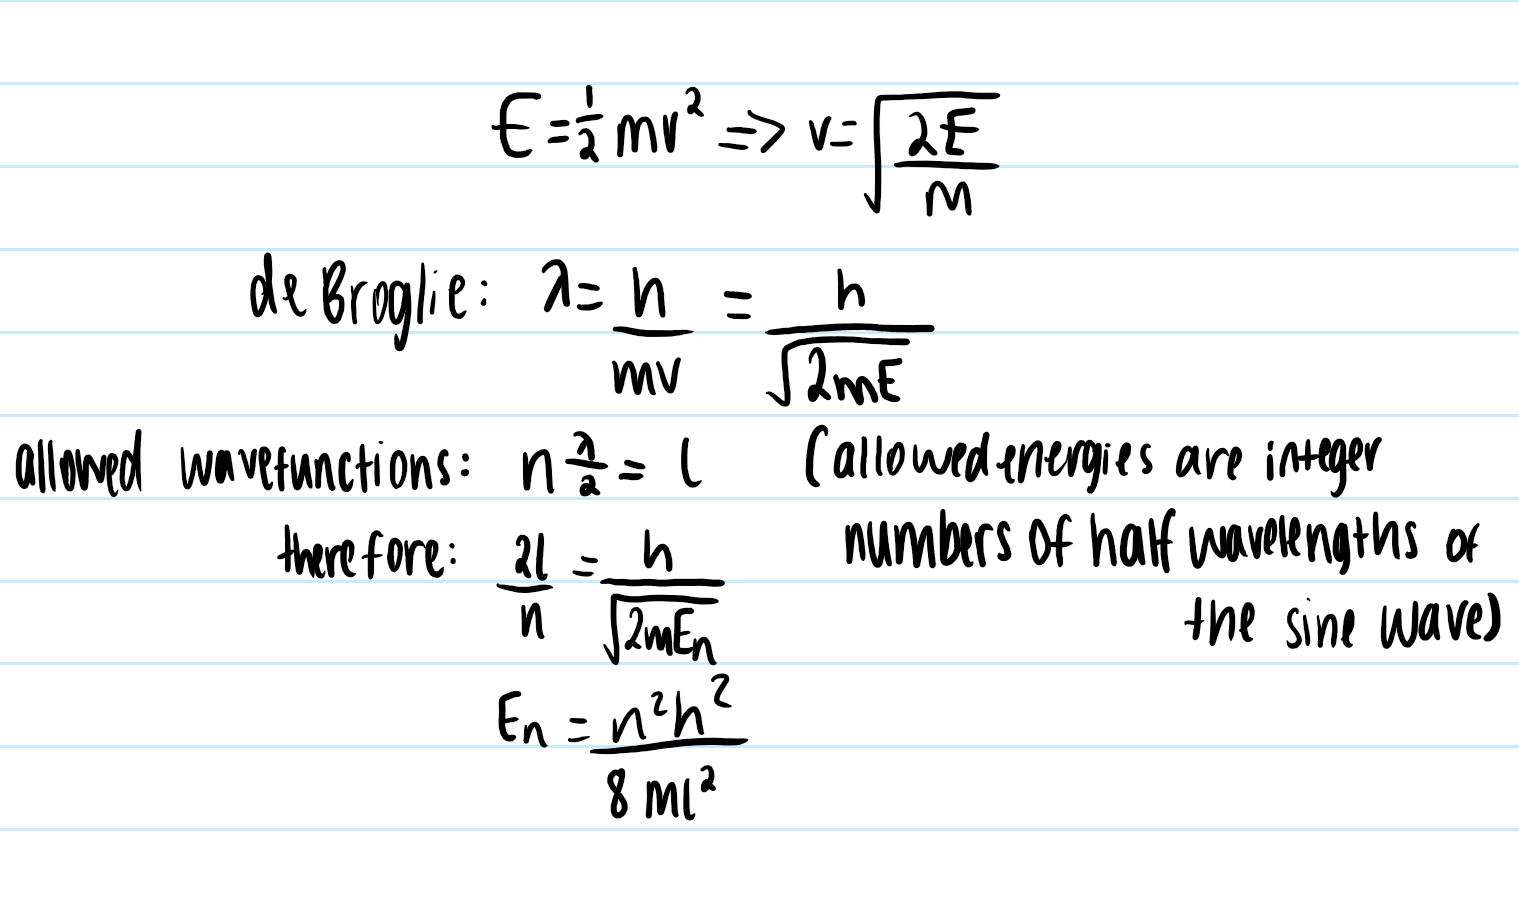 E = 1/2 mv² => v = √(2E/m)
de Broglie: λ = h/mv = h/√(2mE)
allowed wavefunctions: n λ/2 = l (allowed energies are integer
numbers of half wavelengths of
the sine wave)
therefore: 2l/n = h/√(2mEₙ)
Eₙ = n²h²/8ml²